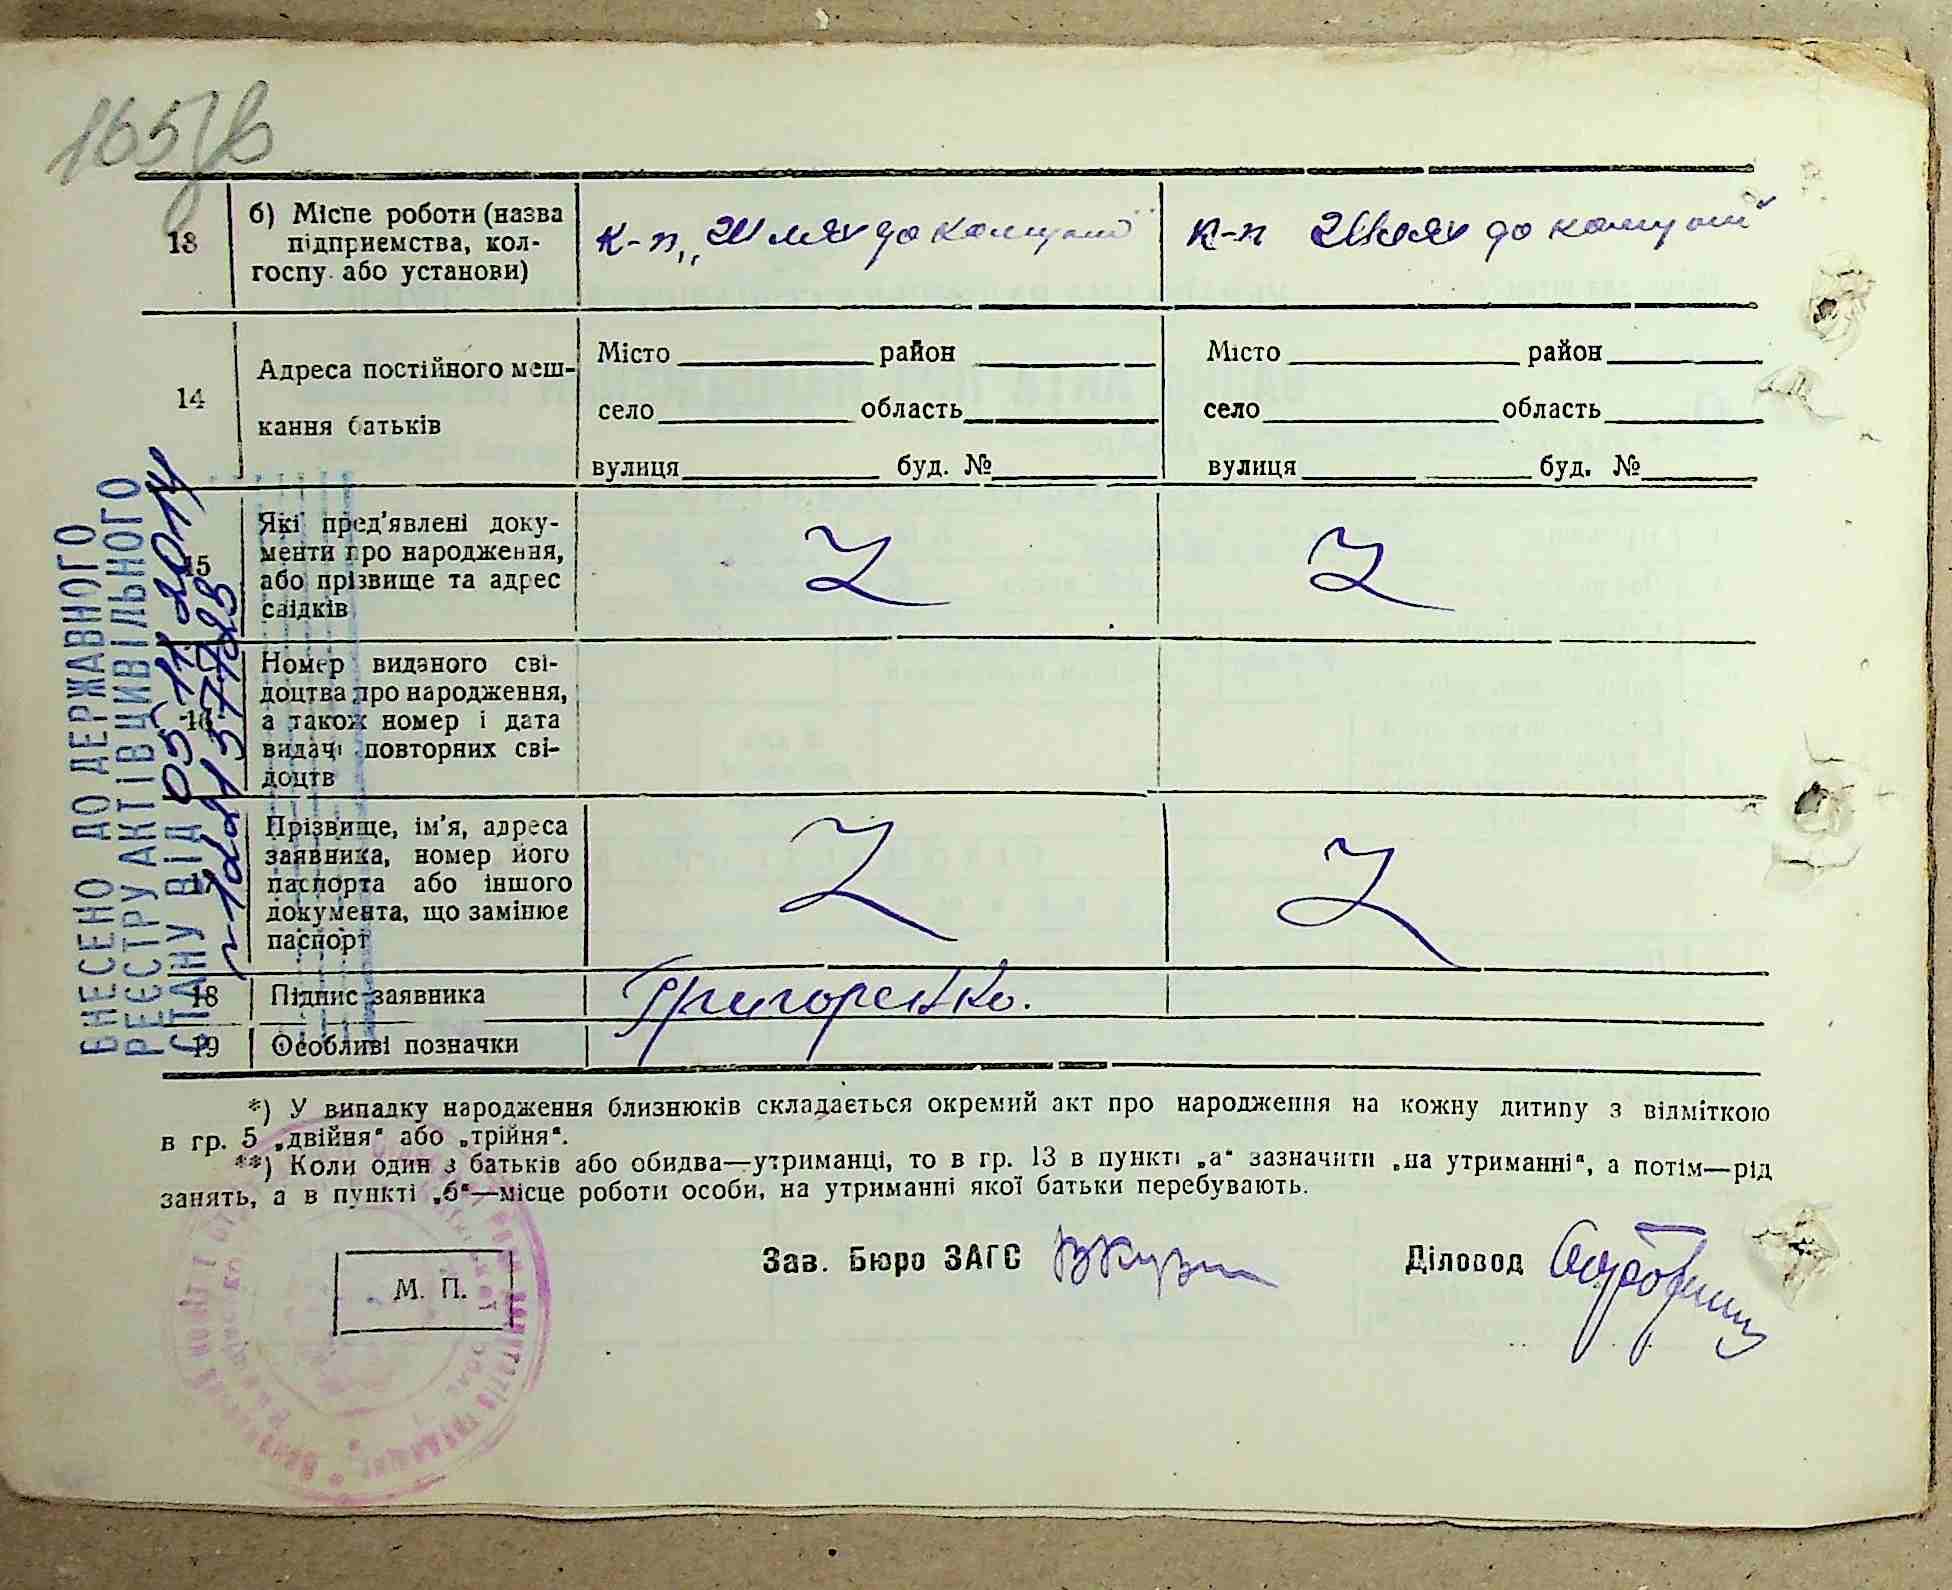 165зв
13 б) Місце роботи (назва
підприємства, кол-
госпу або установи)
к-п „Шлях до комуни"
к-п Шлях до комуни"
14 Адреса постійного меш-
кання батьків
Місто район
село область
вулиця буд. №
Місто район
село область
вулиця буд. №
15 Які пред'явлені доку-
менти про народження,
або прізвище та адрес
свідків
Z Z
16 Номер виданого сві-
доцтва про народження,
а також номер і дата
видачі повторних сві-
доцтв
17 Прізвище, ім'я, адреса
заявника, номер його
паспорта або іншого
документа, що замінює
паспорт
Z Z
18 Підпис заявника Григоренко.
19 Особливі позначки
ВНЕСЕНО ДО ДЕРЖАВНОГО
РЕЄСТРУ АКТІВ ЦИВІЛЬНОГО
СТАНУ ВІД 05 11 2014
*) У випадку народження близнюків складається окремий акт про народження на кожну дитину з відміткою
в гр. 5 „двійня" або „трійня".
**) Коли один з батьків або обидва—утриманці, то в гр. 13 в пункті „а" зазначити „на утриманні", а потім—рід
занять, а в пункті „б"—місце роботи особи, на утриманні якої батьки перебувають.
М. П.
Зав. Бюро ЗАГС
Діловод